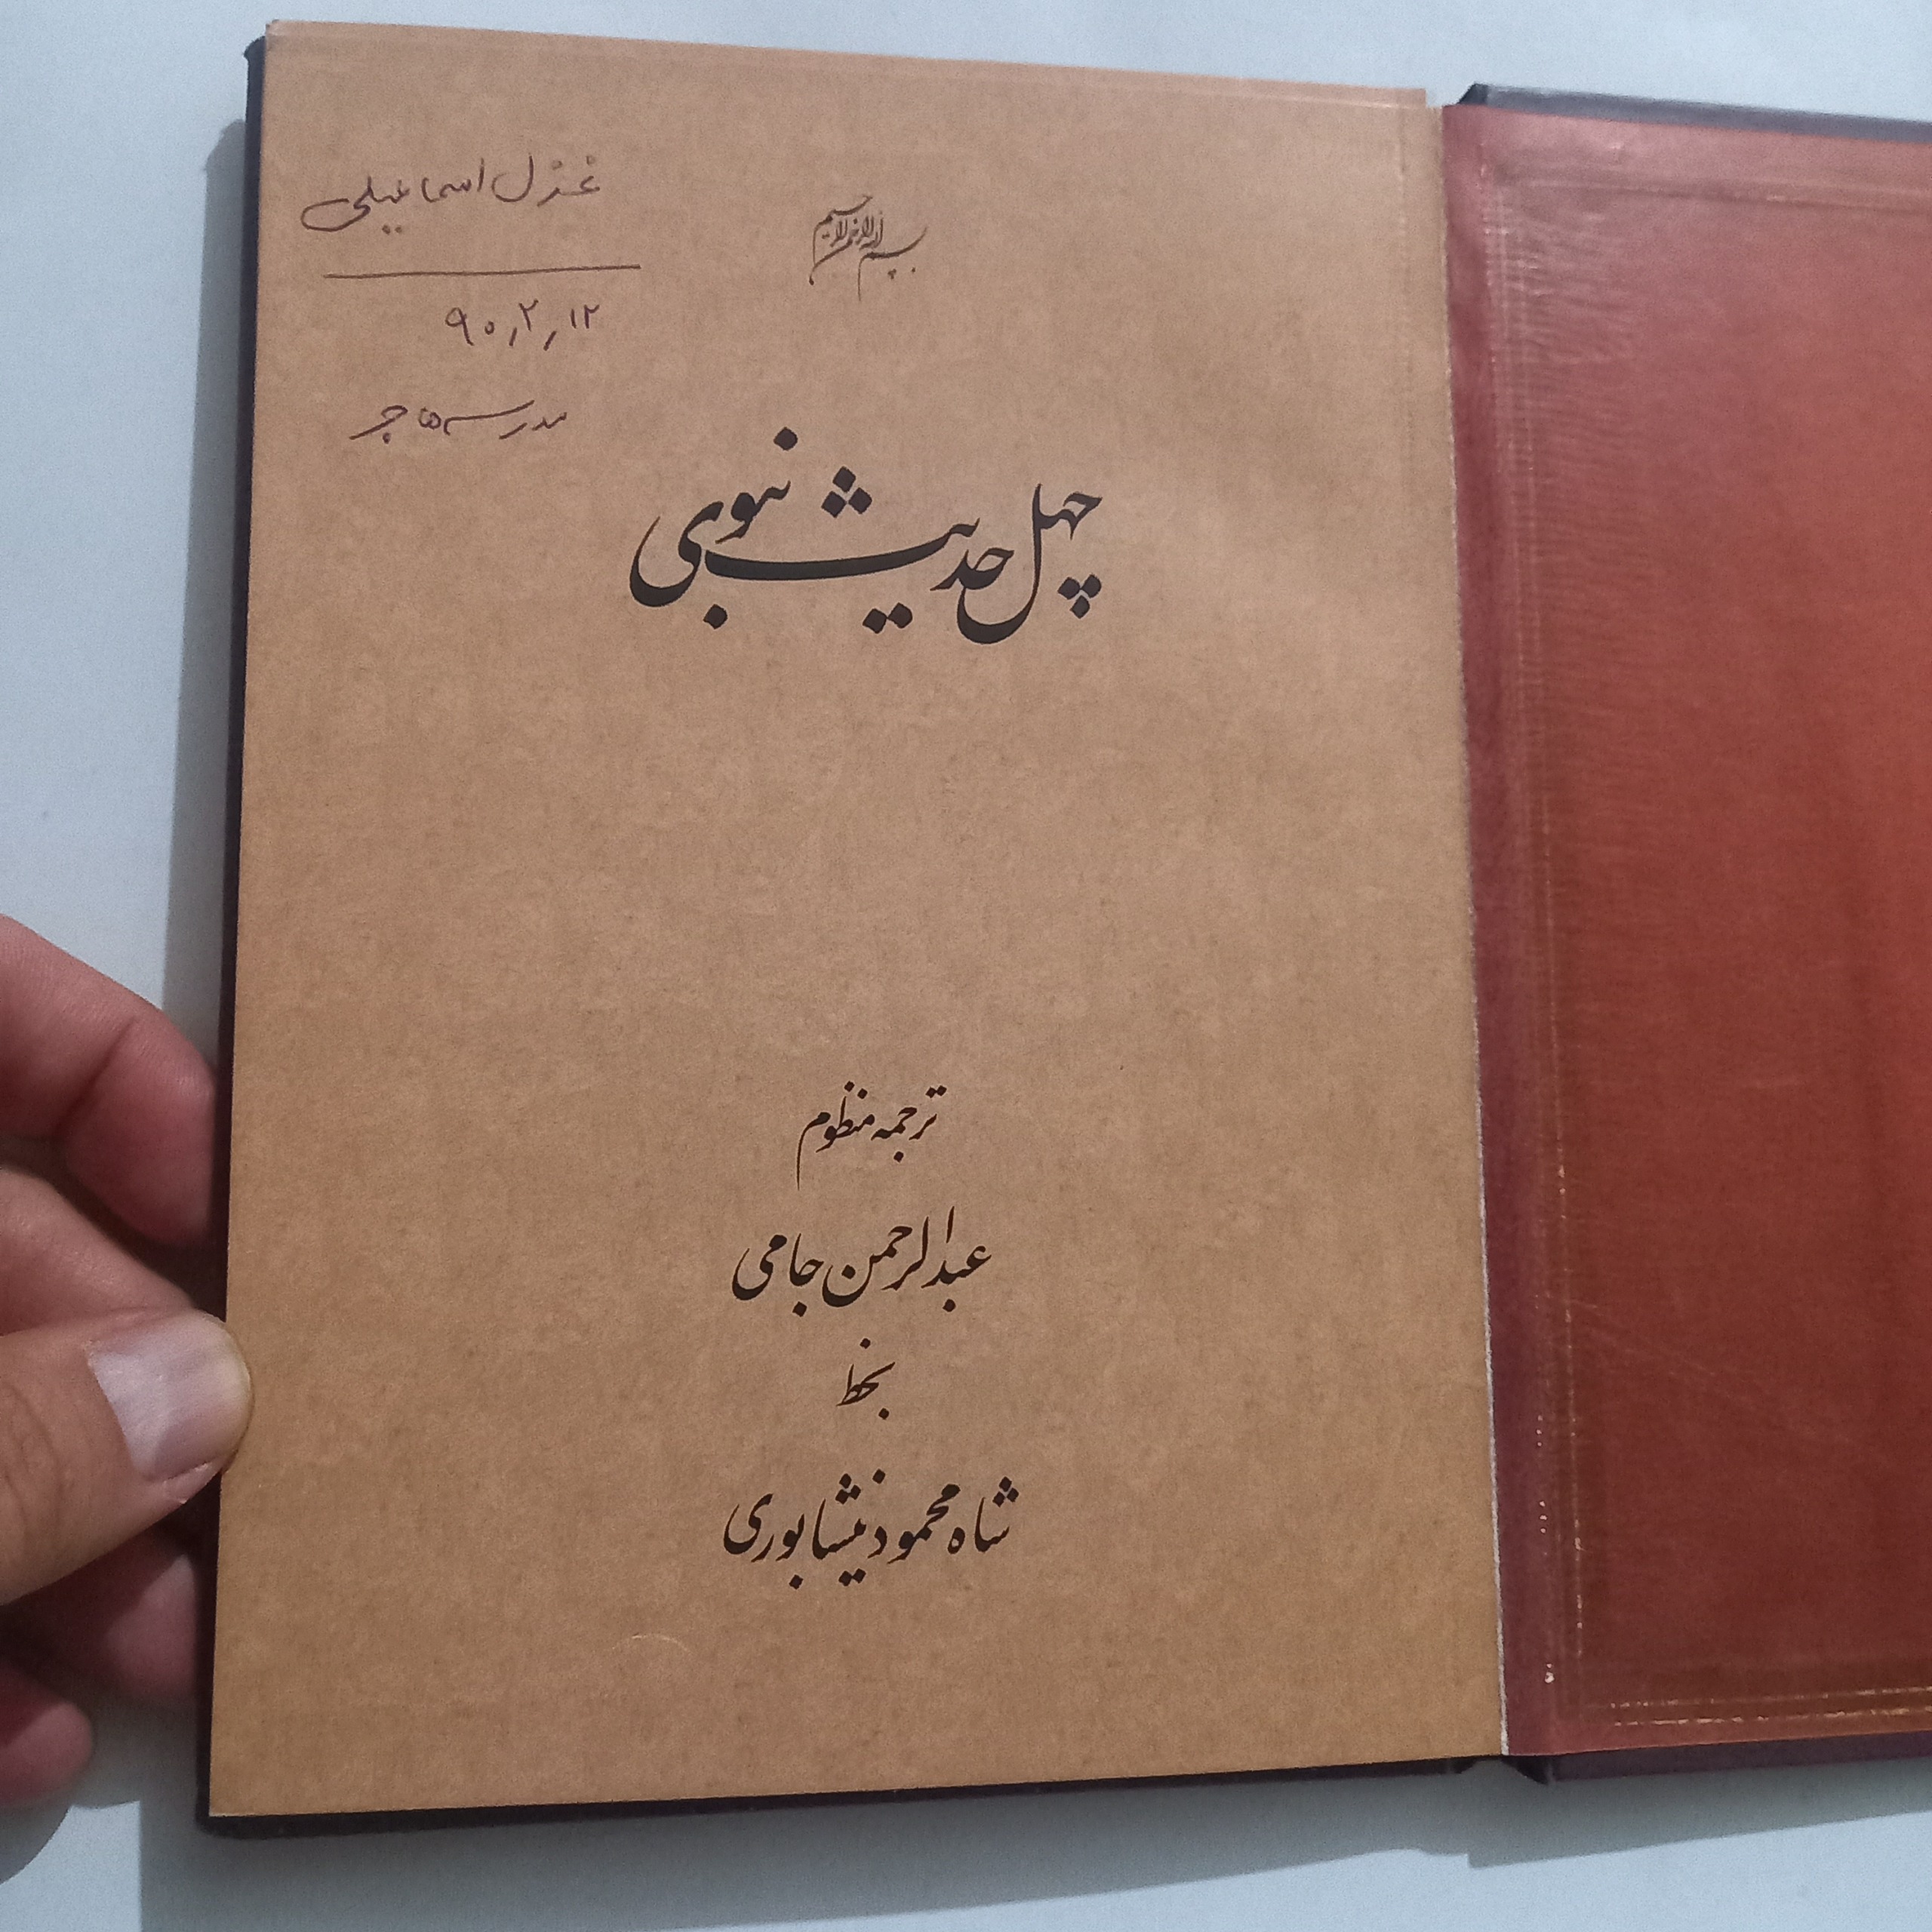 غزل اسماعیلی
۹۰٫۲٫۱۲
مدرسه هاجر
بسم الله الرحمن الرحیم
چهل حدیث نبوی
ترجمه منظوم
عبدالرحمن جامی
بخط
شاه محمود نیشابوری